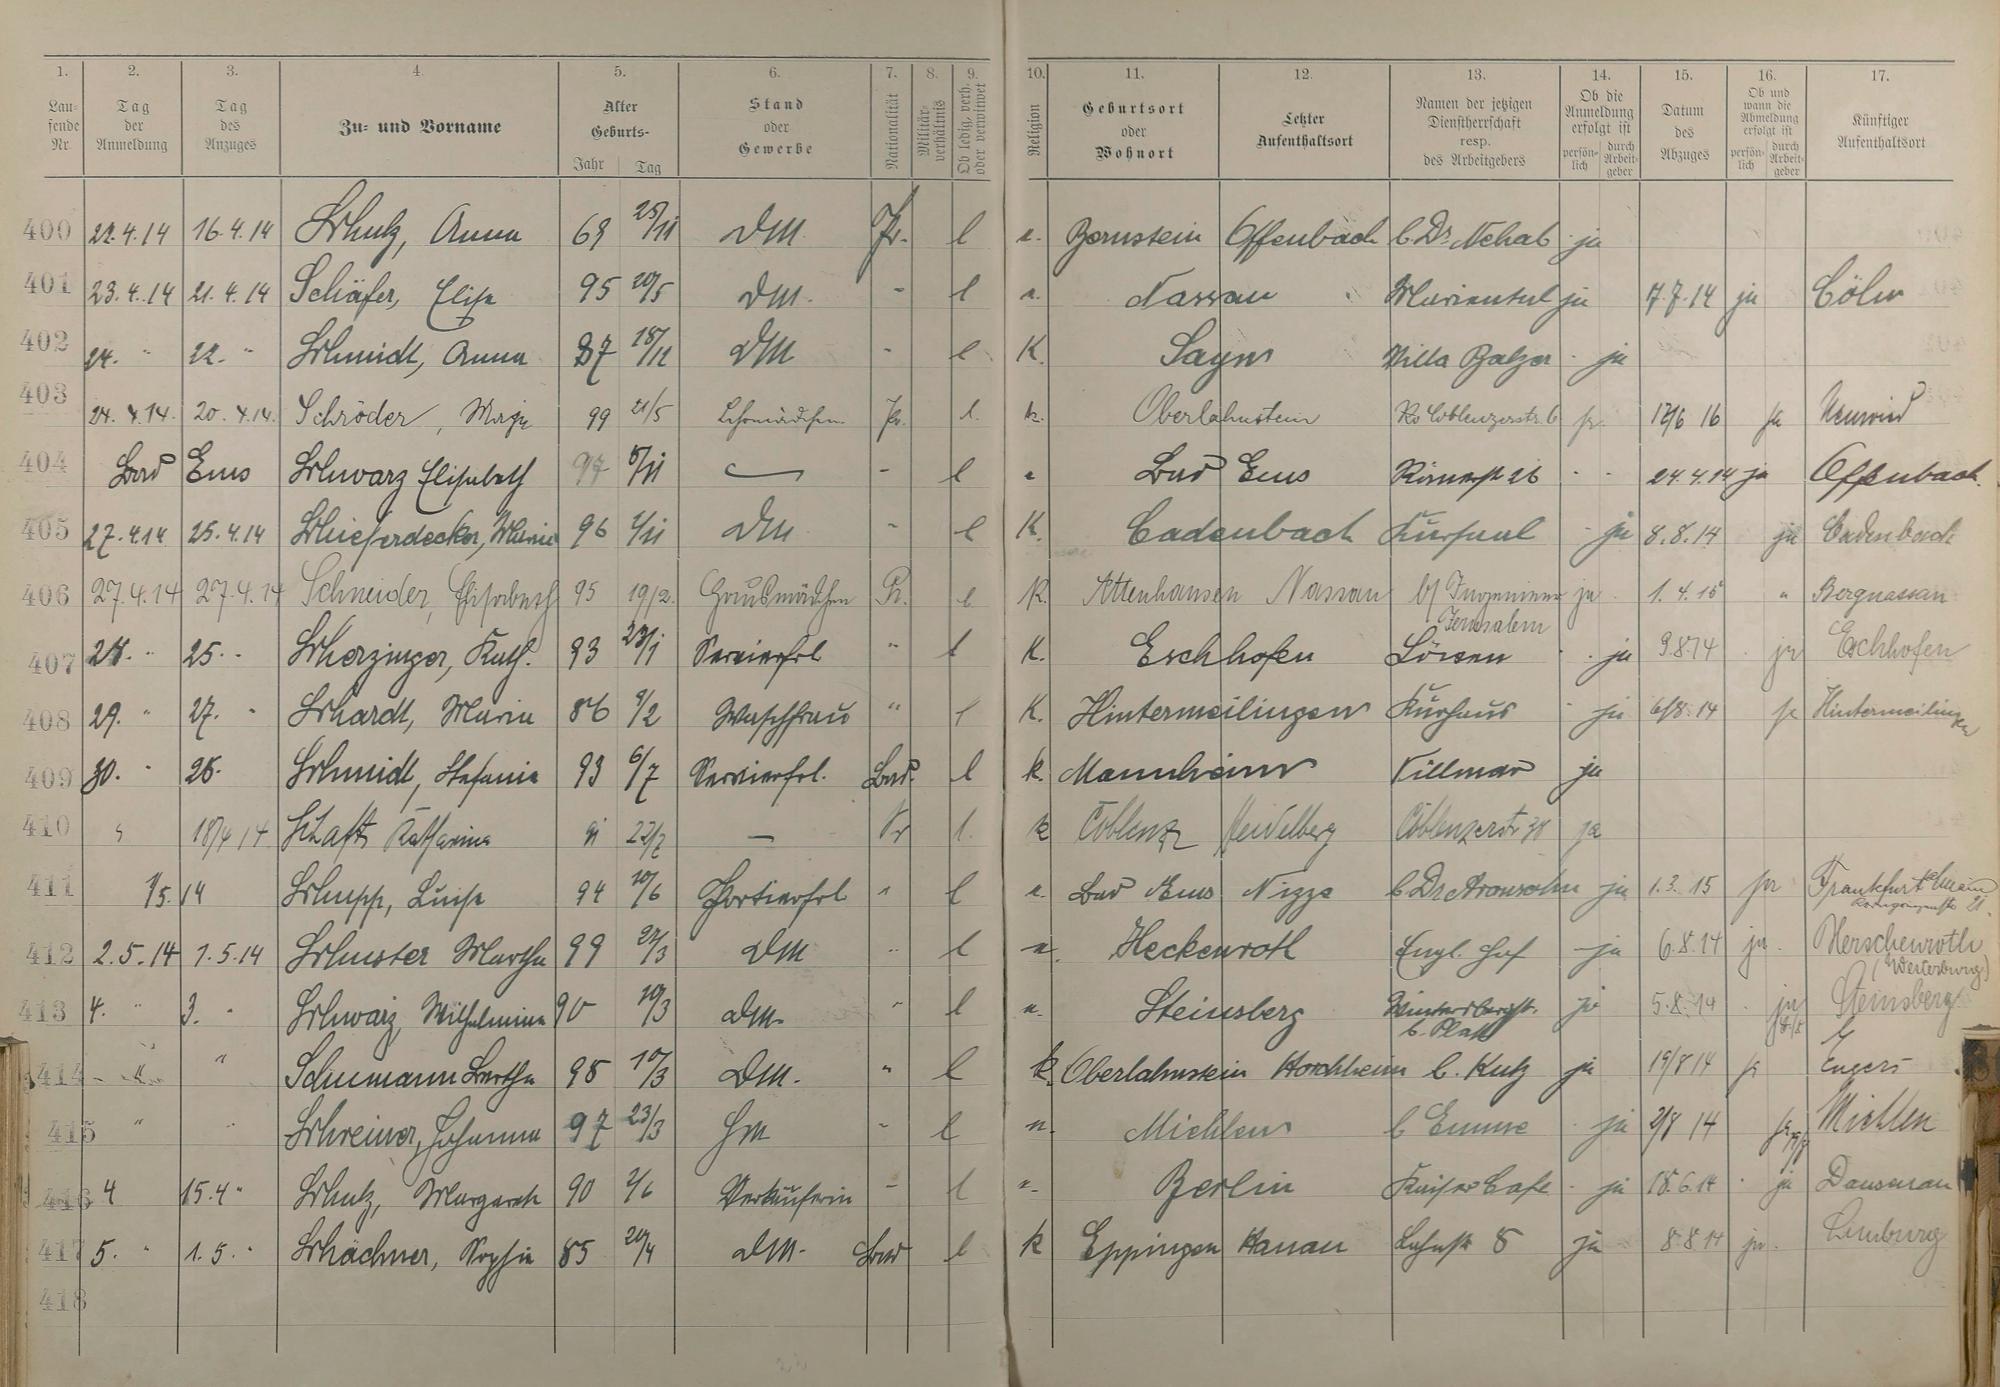 1. 2. 3. 4. 5. 6. 7. 8. 9. 10. 11. 12. 13. 14. 15. 16. 17.
Lau-fende Nr. Tag der Anmeldung Tag des Anzuges Zu- und Vorname Alter Geburts- Jahr Tag Stand oder Gewerbe Nationalität Militär-verhältnis Ob ledig, verh. oder verwitwet Religion Geburtsort oder Wohnort Letzter Aufenthaltsort Namen der jetzigen Dienstherrschaft resp. des Arbeitgebers Ob die Anmeldung erfolgt ist persön-lich durch Arbeit-geber Datum des Abzuges Ob und wann die Abmeldung erfolgt ist persön-lich durch Arbeit-geber Künftiger Aufenthaltsort
400 22.4.14 16.4.14 Schulz, Anna 69 25/11 DM. Pr. l e. Bernstein Offenbach b. Dr. ja
401 23.4.14 21.4.14 Schäfer, Elise 95 20/5 DM. - l e. Nassau " Mariental ja 17.7.14 ja Cöln
402 24. " 22. " Schmidt, Anna 87 18/12 DM - l K. Sayn Villa Balzer - ja
403 24.4.14. 20.4.14. Schröder, 99 21/5 Lehrmädchen Pr. l. k. Oberlahnstein Coblenzerstr. 6 ja 17/6 16 ja Neuwied
404 Bad Ems Schwarz Elisabeth 97 5/11 — - l e Bad Ems Römerstr 26 - - 24.4.14 ja Offenbach.
405 27.4.14 25.4.14 Schieferdecker, Marie 96 1/11 DM " l K. Cadenbach Kursaal - ja 8.8.14 ja Cadenbach
406 27.4.14 27.4.14 Schneider, Elisabeth 95 19/2. Hausmädchen Pr. l K. Attenhausen Nassau b/ Ingenieur Jerusalem ja 1.4.15 " Bergnassau
407 28. " 25. " Scherzinger, Kath. 93 23/1 Servierfrl " l K. Eschhofen Löwen - ja 9.8.14 ja Eschhofen
408 29. " 27. " Schardt, Maria 86 9/2 Waschfrau " l K. Hintermeilingen Kurhaus - ja 6/8.14 ja Hintermeilingen
409 30. " 28. Schmidt, Stefanie 93 6/7 Servierfrl. Bad. l k. Mannheim Villmar ja
410 " 18/4 14. Schaft Katharina 91 22/2 — Pr l. k Coblenz Heidelberg Coblenzerstr 38 ja
411 1/5.14 Schupp, Luise 94 10/6 Portierfrl " l e. Bad Ems Nizza b. Dr Aronsohn ja 1.3.15 ja Frankfurt a/Main 21.
412 2.5.14 1.5.14 Schuster Martha 99 22/3 DM " l e. Heckenroth Engl. Hof - ja 6.8.14 ja. Herschenroth (Westerburg)
413 4. " 3. " Schwarz, Wilhelmine 90 10/3 DM. " l e. Steinsberg b. Platt ja 5.8.14 . ja Steinsberg
414 " " Schumann Bertha 98 10/3 DM. " l k. Oberlahnstein Horchheim b. Kutz ja 19/8 14 ja Engers
415 " " Schreiner, Johanna 97 23/3 Hm - l e. Miehlen b Emme - ja 2/8 14 ja Miehlen
416 4 15.4 " Schulz, Margarete 90 2/6 Verkäuferin - l e. Berlin Kaiser Cafe - ja 18.6.14 . ja Dausenau
417 5. " 1.5. " Schächner, Sophie 85 20/4 DM. Bad l k Eppingen Hanau Lahnstr 8 ja 8.8.14 ja. Limburg
418